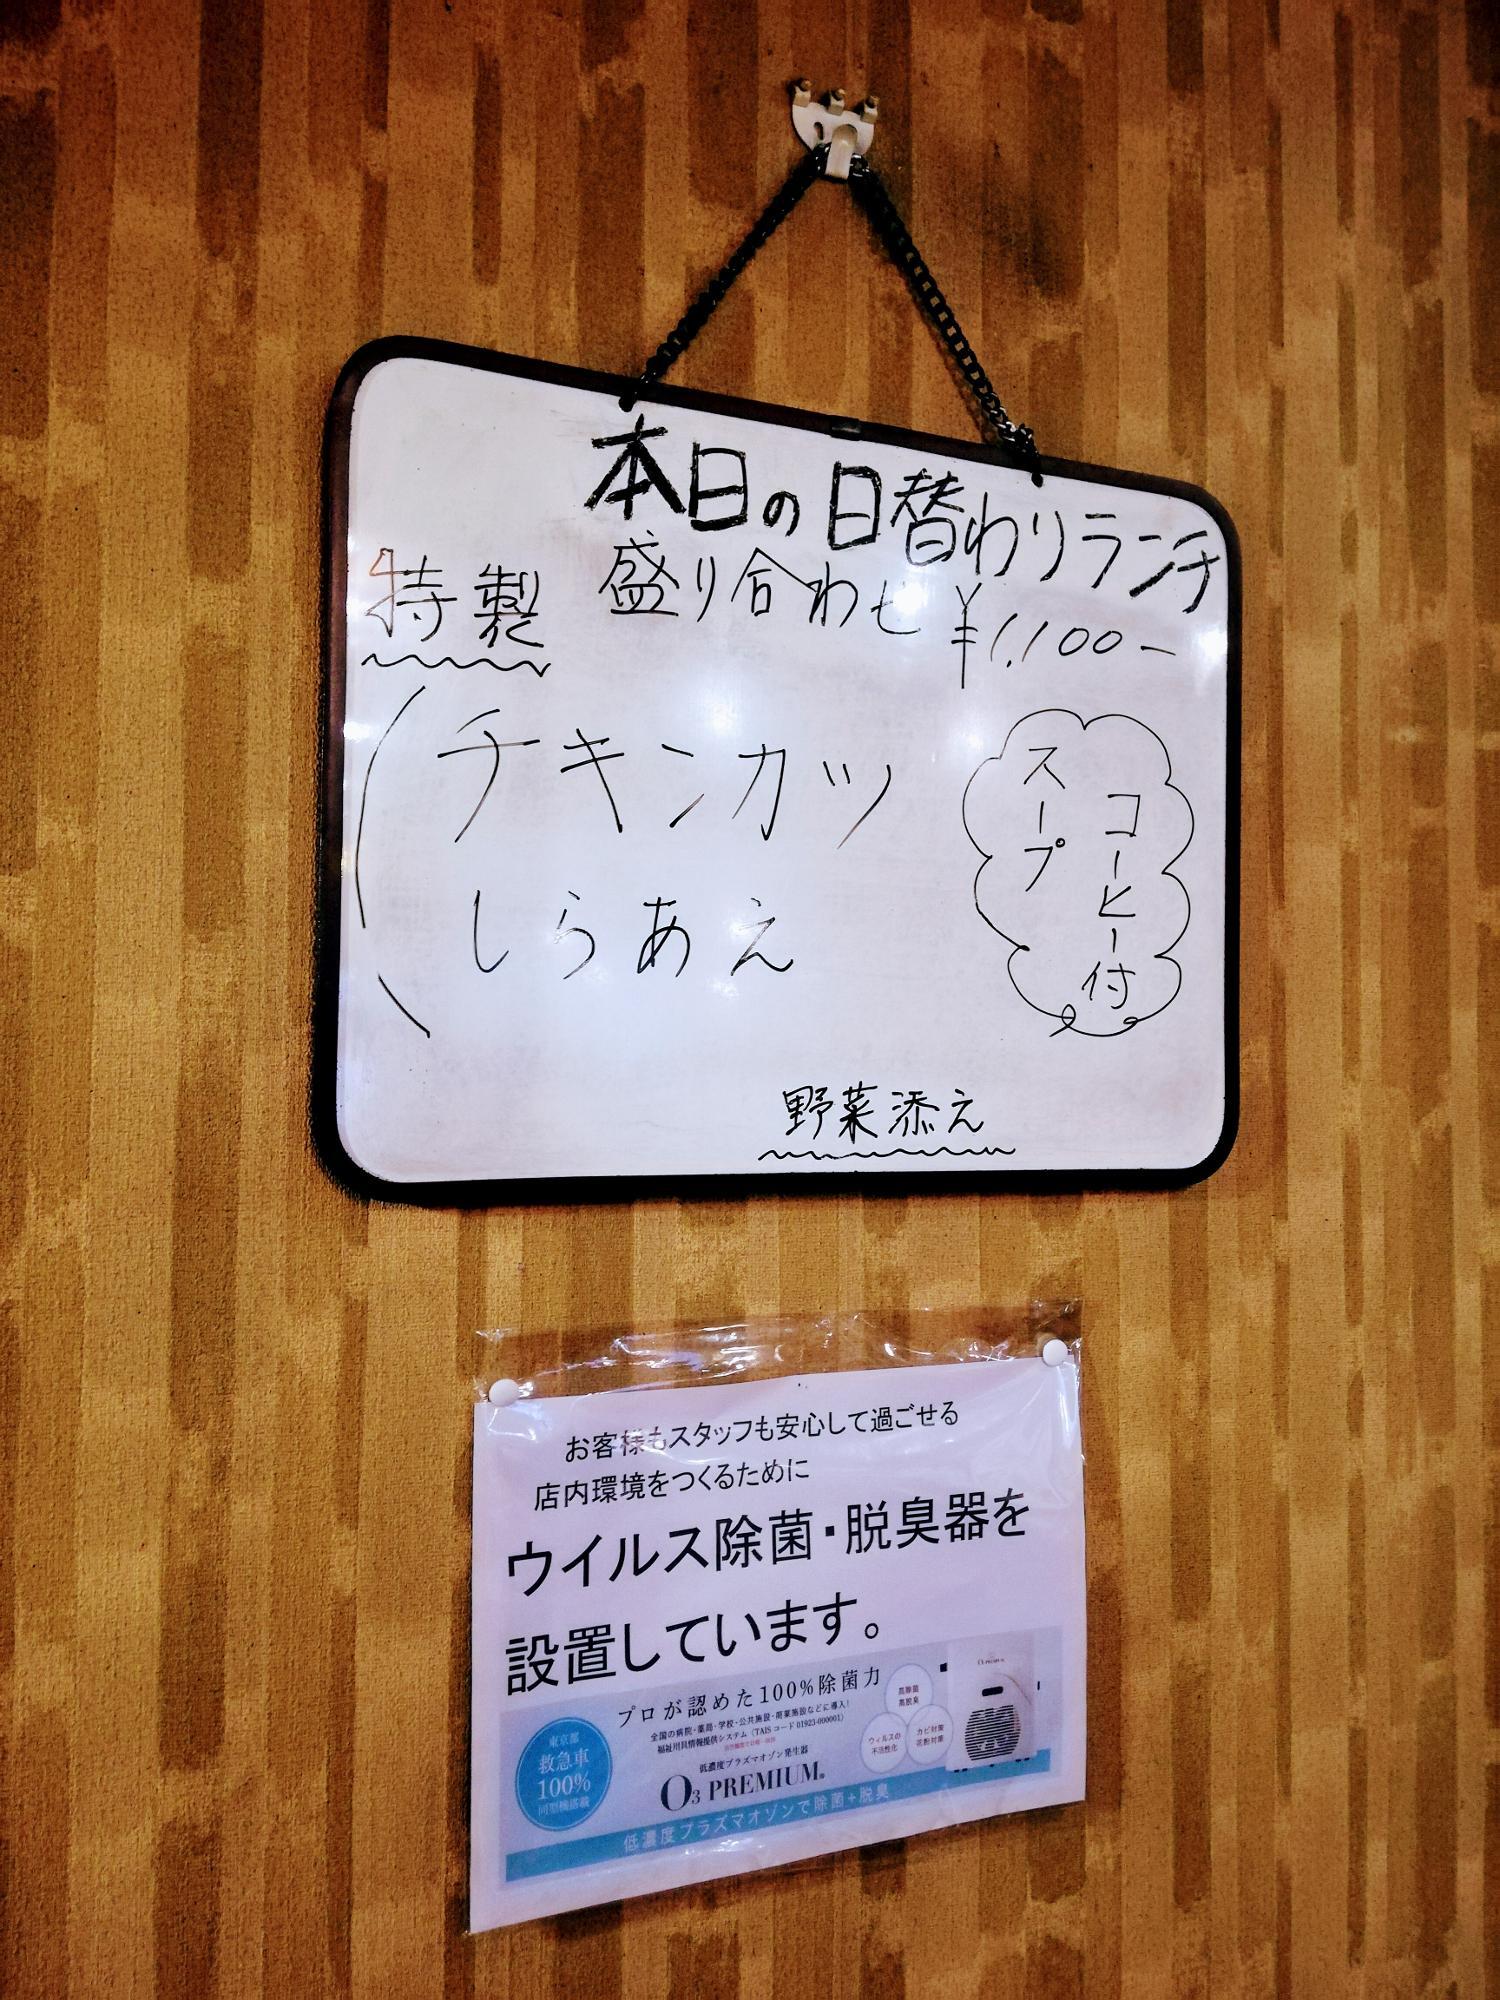 本日の日替わりランチ
特製 盛り合わせ ¥1,100-
チキンカツ
しらあえ
スープ
コーヒー付
野菜添え
お客様もスタッフも安心して過ごせる
店内環境をつくるために
ウイルス除菌・脱臭器を
設置しています。
プロが認めた100%除菌力
全国の病院・薬局・学校・公共施設・商業施設などに導入!
福祉用具情報提供システム（TAISコード 01923-000001）
東京都
救急車
100%
同型機搭載
低濃度プラズマオゾン発生器
O3 PREMIUM
高除菌
高脱臭
ウィルスの
不活性化
カビ対策
花粉対策
低濃度プラズマオゾンで除菌+脱臭